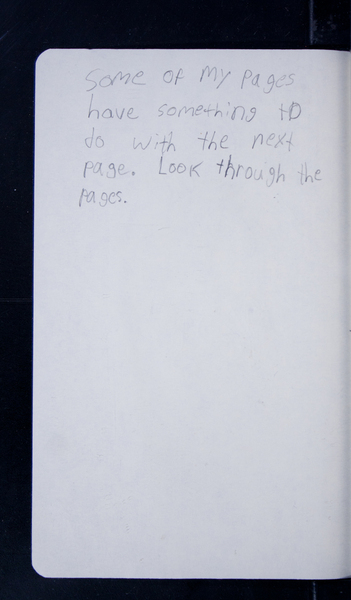 Some of My pages
have something to
do with the next
page. Look through the
pages.